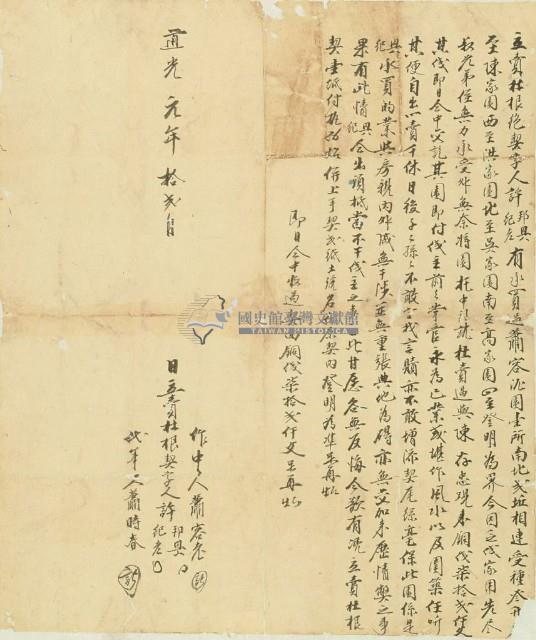 立賣杜根絕契字人許邦興紀老有承買過蕭容沁園壹所南北弐坵相連受種叁升
至陳家園西至洪家園北至吳家園南至高家園四至登明為界今因乏伐家用先尽
叔兄弟侄無力承受外無奈將園托中引就杜賣過與陳存忠現来銅伐柒拾弐仟
其伐即日仝中交訖其園即付伐主前去掌管永為己業或堪作風水以及園築任听
其便自出一賣千休日後子子孫孫不敢言找言贖亦不敢增添契尾絲毫保此園係是
興紀承買的業與房親內外成無干涉並無重張典他為碍亦無交加来歷情獘之事
果有此情興紀仝出頭抵當不干伐主之事此甘愿各無反悔今欲有凭立賣杜根
契壹紙付執為炤併上手契弐紙土綫名茶契內登明為準再炤
即日仝中收過契面銅伐柒拾弐仟文足再炤
道光元年拾弐月
日立賣杜根契字人許邦興紀老
作中人蕭容老
代筆人蕭時春
國史館臺灣文獻館
TAIWAN HISTORICA